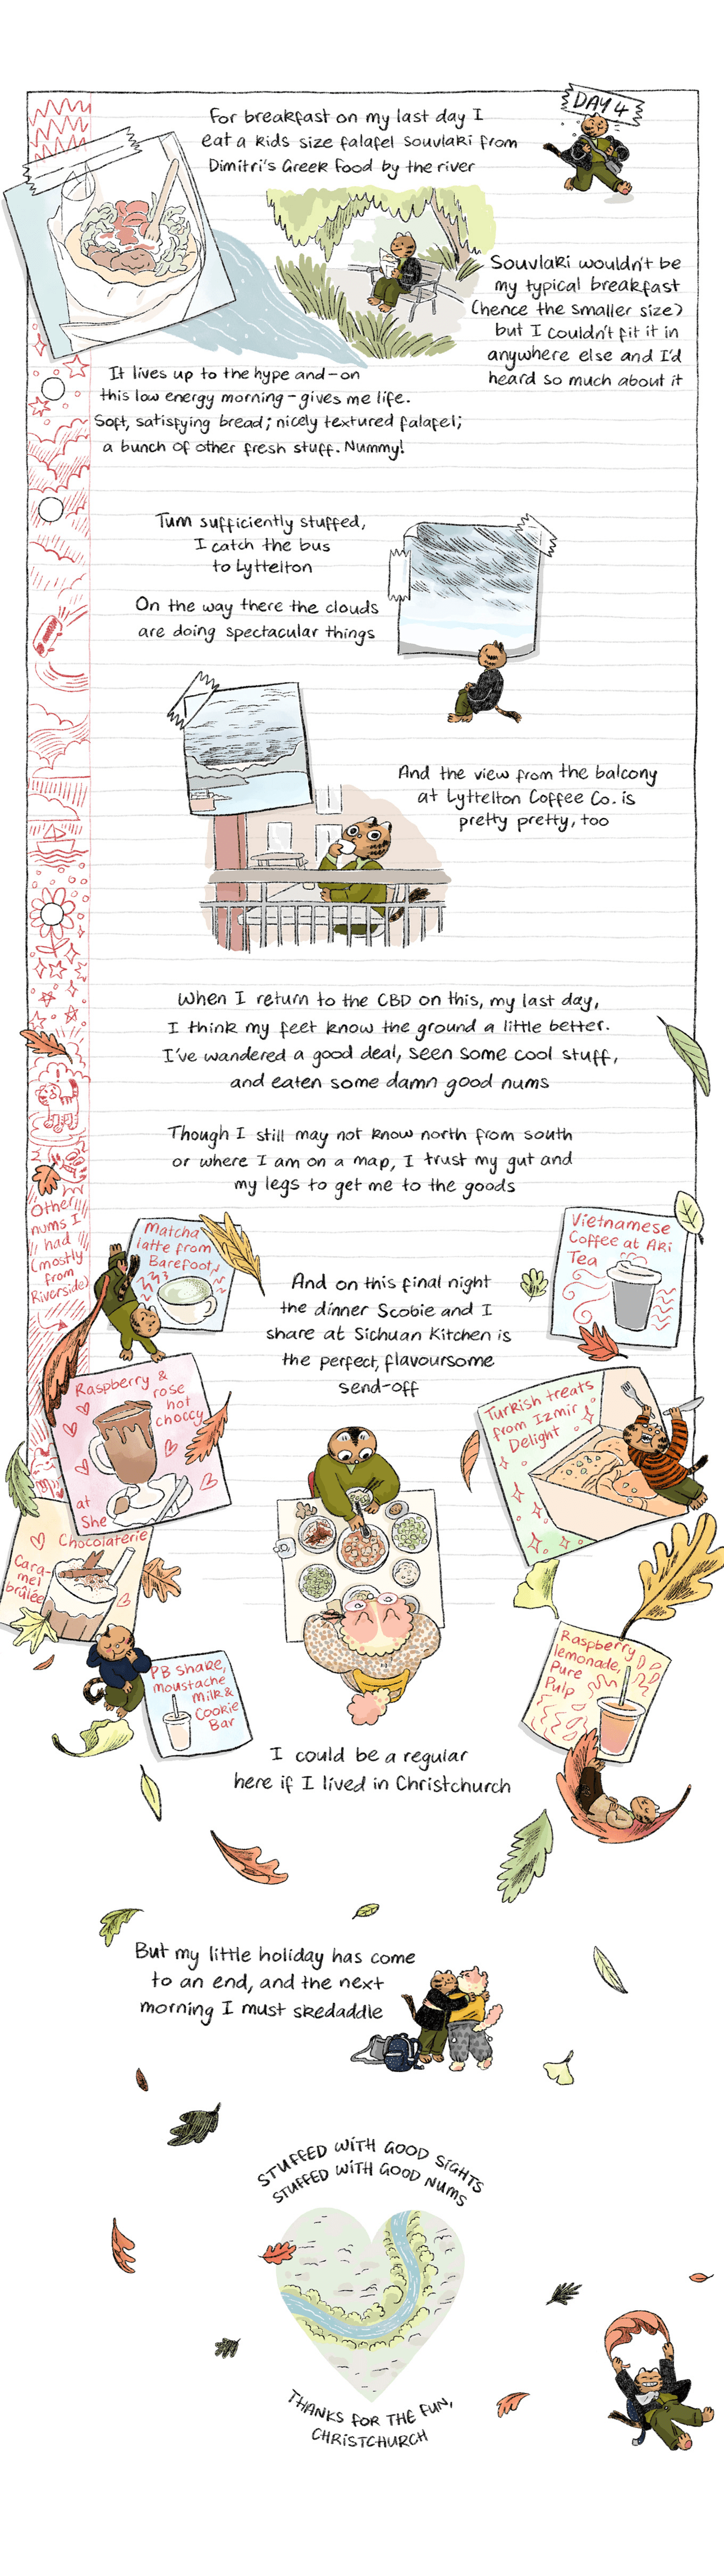 DAY 4
For breakfast on my last day I
eat a kids size falafel souvlaki from
Dimitri's Greek Food by the river
Souvlaki wouldn't be
my typical breakfast
(hence the smaller size)
but I couldn't fit it in
anywhere else and I'd
heard so much about it
It lives up to the hype and – on
this low energy morning – gives me life.
Soft, satisfying bread; nicely textured falafel;
a bunch of other fresh stuff. Nummy!
Tum sufficiently stuffed,
I catch the bus
to Lyttelton
On the way there the clouds
are doing spectacular things
And the view from the balcony
at Lyttelton Coffee Co. is
pretty pretty, too
When I return to the CBD on this, my last day,
I think my feet know the ground a little better.
I've wandered a good deal, seen some cool stuff,
and eaten some damn good nums
Though I still may not know north from south
or where I am on a map, I trust my gut and
my legs to get me to the goods
Other
nums I
had
(mostly
from
Riverside)
Matcha
latte from
Barefoot
Vietnamese
Coffee at Aki
Tea
And on this final night
the dinner Scobie and I
share at Sichuan Kitchen is
the perfect, flavoursome
send-off
Raspberry &
rose
hot
choccy
at
She
Chocolaterie
Turkish treats
from Izmir
Delight
Cara-
mel
brûlée
PB shake,
moustache
milk &
Cookie
Bar
Raspberry
lemonade,
Pure
Pulp
I could be a regular
here if I lived in Christchurch
But my little holiday has come
to an end, and the next
morning I must skedaddle
STUFFED WITH GOOD SIGHTS
STUFFED WITH GOOD NUMS
THANKS FOR THE FUN,
CHRISTCHURCH